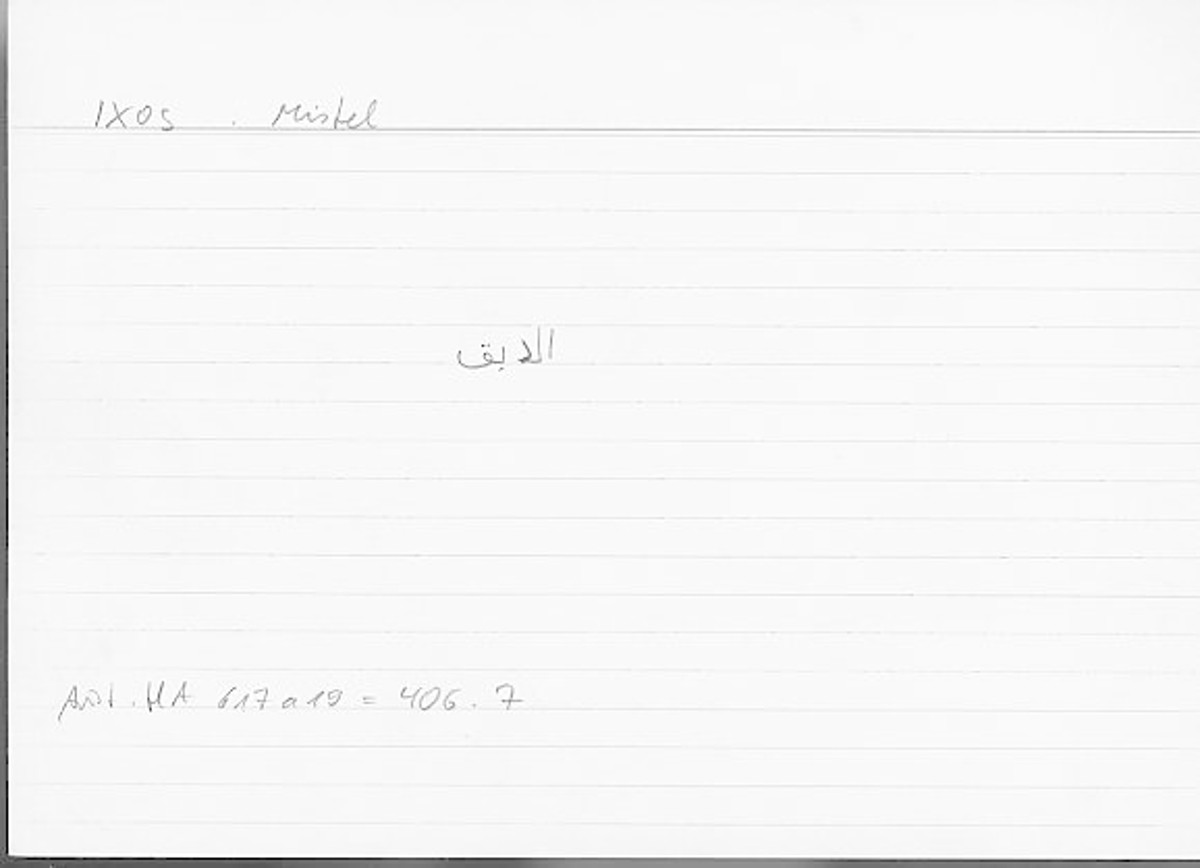 IXOS . Mistel
الدبق
Arist. HA 617a19 = 406.7